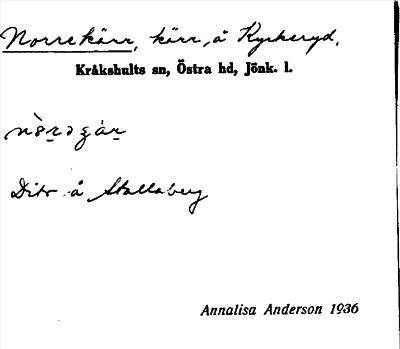 Norrekärr, kärr, å Kyrkeryd.
Kråkshults sn, Östra hd, Jönk. l.
Dito å Stallaberg
Annalisa Anderson 1936